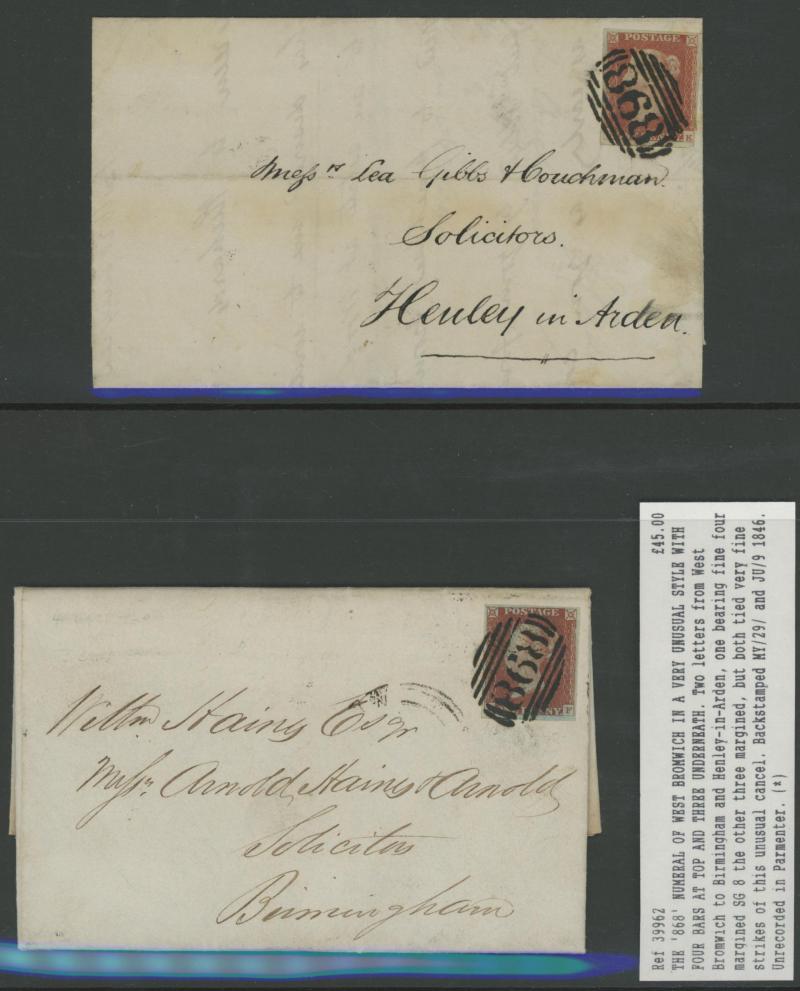 POSTAGE
868
K
Messrs Lea Gibbs & Couchman.
Solicitors.
Henley in Arden.
POSTAGE
868
NY P
Willm Haines Esqr
Messrs Arnold, Haines & Arnold
Solicitors
Birmingham
Ref 39962 £45.00
THE '868' NUMERAL OF WEST BROMWICH IN A VERY UNUSUAL STYLE WITH
FOUR BARS AT TOP AND THREE UNDERNEATH. Two letters from West
Bromwich to Birmingham and Henley-in-Arden, one bearing fine four
margined SG 8 the other three margined, but both tied very fine
strikes of this unusual cancel. Backstamped MY/29/ and JU/9 1846.
Unrecorded in Parmenter. (*)